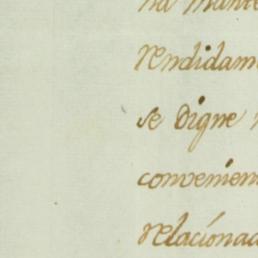 na mante
rendidam
se Digne
convenien
relacionad